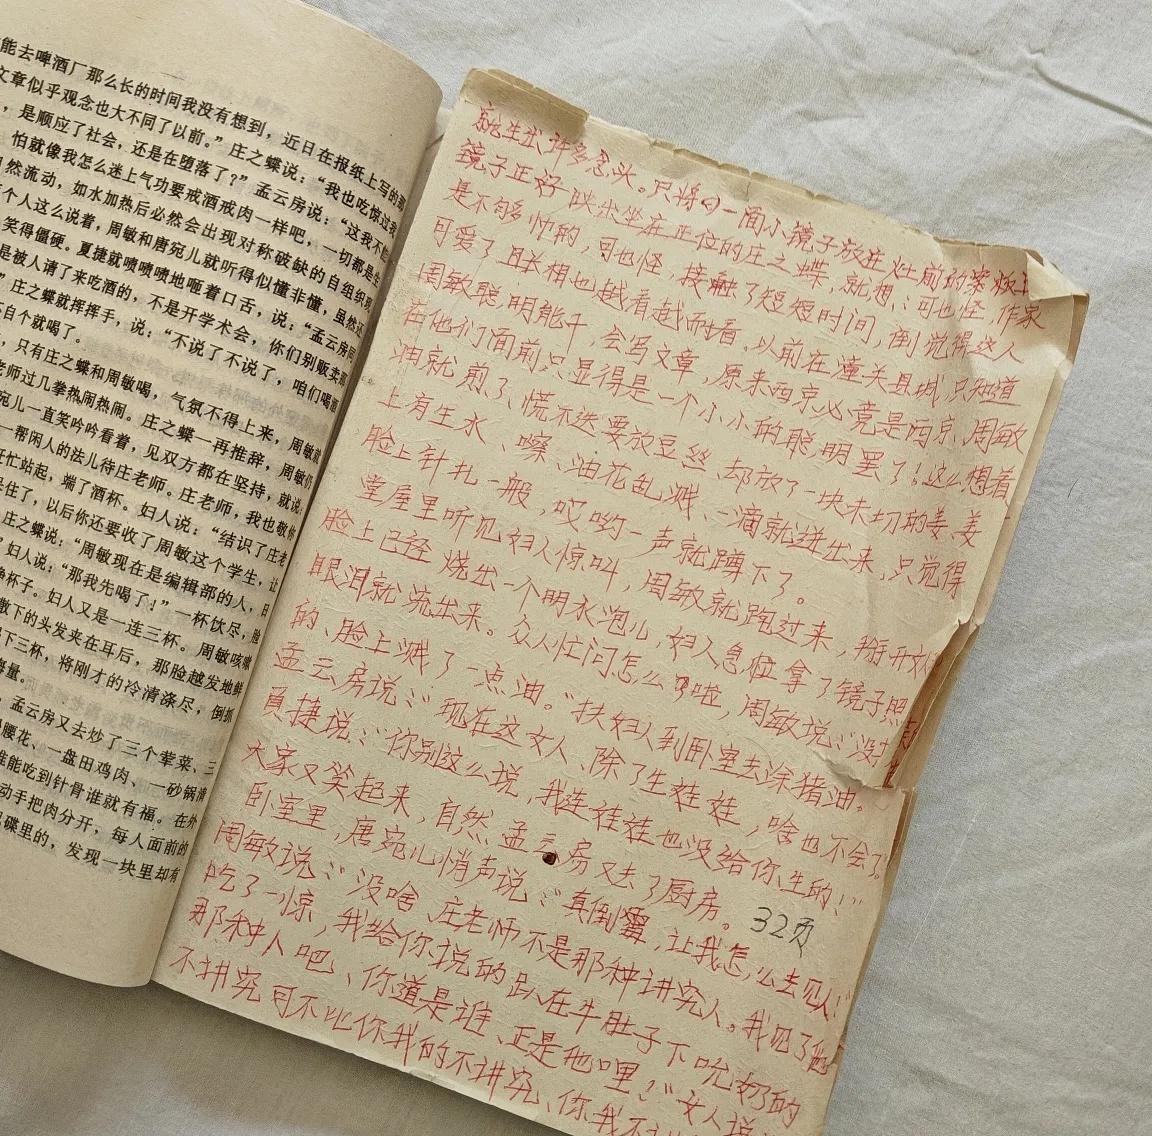 能去啤酒厂那么长的时间我没有想到，近日在报纸上写的那
文章似乎观念也大不同了以前。”庄之蝶说：“我也吃惊过我
，是顺应了社会，还是在堕落了？”孟云房说：“这我不能
怕就像我怎么迷上气功要戒酒戒肉一样吧，一切都是生
自然流动，如水加热后必然会出现对称破缺的自组织现
个人这么说着，周敏和唐宛儿就听得似懂非懂，虽然还
笑得僵硬。夏捷就啧啧啧地咂着口舌，说：“孟云房同
是被人请了来吃酒的，不是开学术会，你们别贩卖那
”庄之蝶就挥挥手，说：“不说了不说了，咱们喝酒
自个就喝了。
，只有庄之蝶和周敏喝，气氛不得上来，周敏就
老师过几拳热闹热闹。庄之蝶一再推辞，周敏仍
宛儿一直笑吟吟看着，见双方都在坚持，就说
一帮闲人的法儿待庄老师。庄老师，我也敬你
忙站起，端了酒杯。妇人说：“结识了庄老
住了，以后你还要收了周敏这个学生，让
庄之蝶说：“周敏现在是编辑部的人，日
”妇人说：“那我先喝了！”一杯饮尽，脸
杯子。妇人又是一连三杯。周敏咳嗽
散下的头发夹在耳后，那脸越发地鲜
下三杯，将刚才的冷清涤尽，倒抓
海量。
，孟云房又去炒了三个荤菜、三
腰花、一盘田鸡肉、一砂锅清
谁能吃到针骨谁就有福。在外
动手把肉分开，每人面前的
碟里的，发现一块里却有
就生出许多念头。只将一面小镜子放在灶前的案板上
镜子正好映出坐在正位的庄之蝶，就想：可也怪，作家
是不够怕的，可也怪，接触了短短时间，倒觉得这人
可爱了且长相也越看越耐看。以前在潼关县城，只知道
周敏聪明能干，会写文章，原来西京必竟是西京，周敏
在他们面前，只显得是一个小小的聪明罢了！这么想着
油就煎了，慌不迭要放豆丝、却放了一块未切的姜，姜
上有生水、嚓、油花乱溅、一滴就迸出来，只觉得
脸上针扎一般，哎哟一声就蹲下了。
堂屋里听见妇人惊叫，周敏就跑过来，掰开双
脸上已经烧出一个明水泡儿，妇人急拉拿了镜子照
眼泪就流出来。众人忙问怎么了啦，周敏说：“没
的、脸上溅了一点油。”扶妇人到卧室去涂猪油。
孟云房说：“现在这女人、除了生娃娃，啥也不会了
夏捷说：“你别这么说，我连娃娃也没给你生的！”
大家又笑起来，自然孟云房又去了厨房。
卧室里，唐宛儿悄声说：“真倒霉，让我怎么去见人！”
32页
周敏说：“没啥、庄老师不是那种讲究人。我见了他
吃了一惊，我给你说的趴在牛肚子下吮奶的
那种人吧、你道是谁、正是他哩！”女人说
不讲究可不比你我的不讲究、你我不